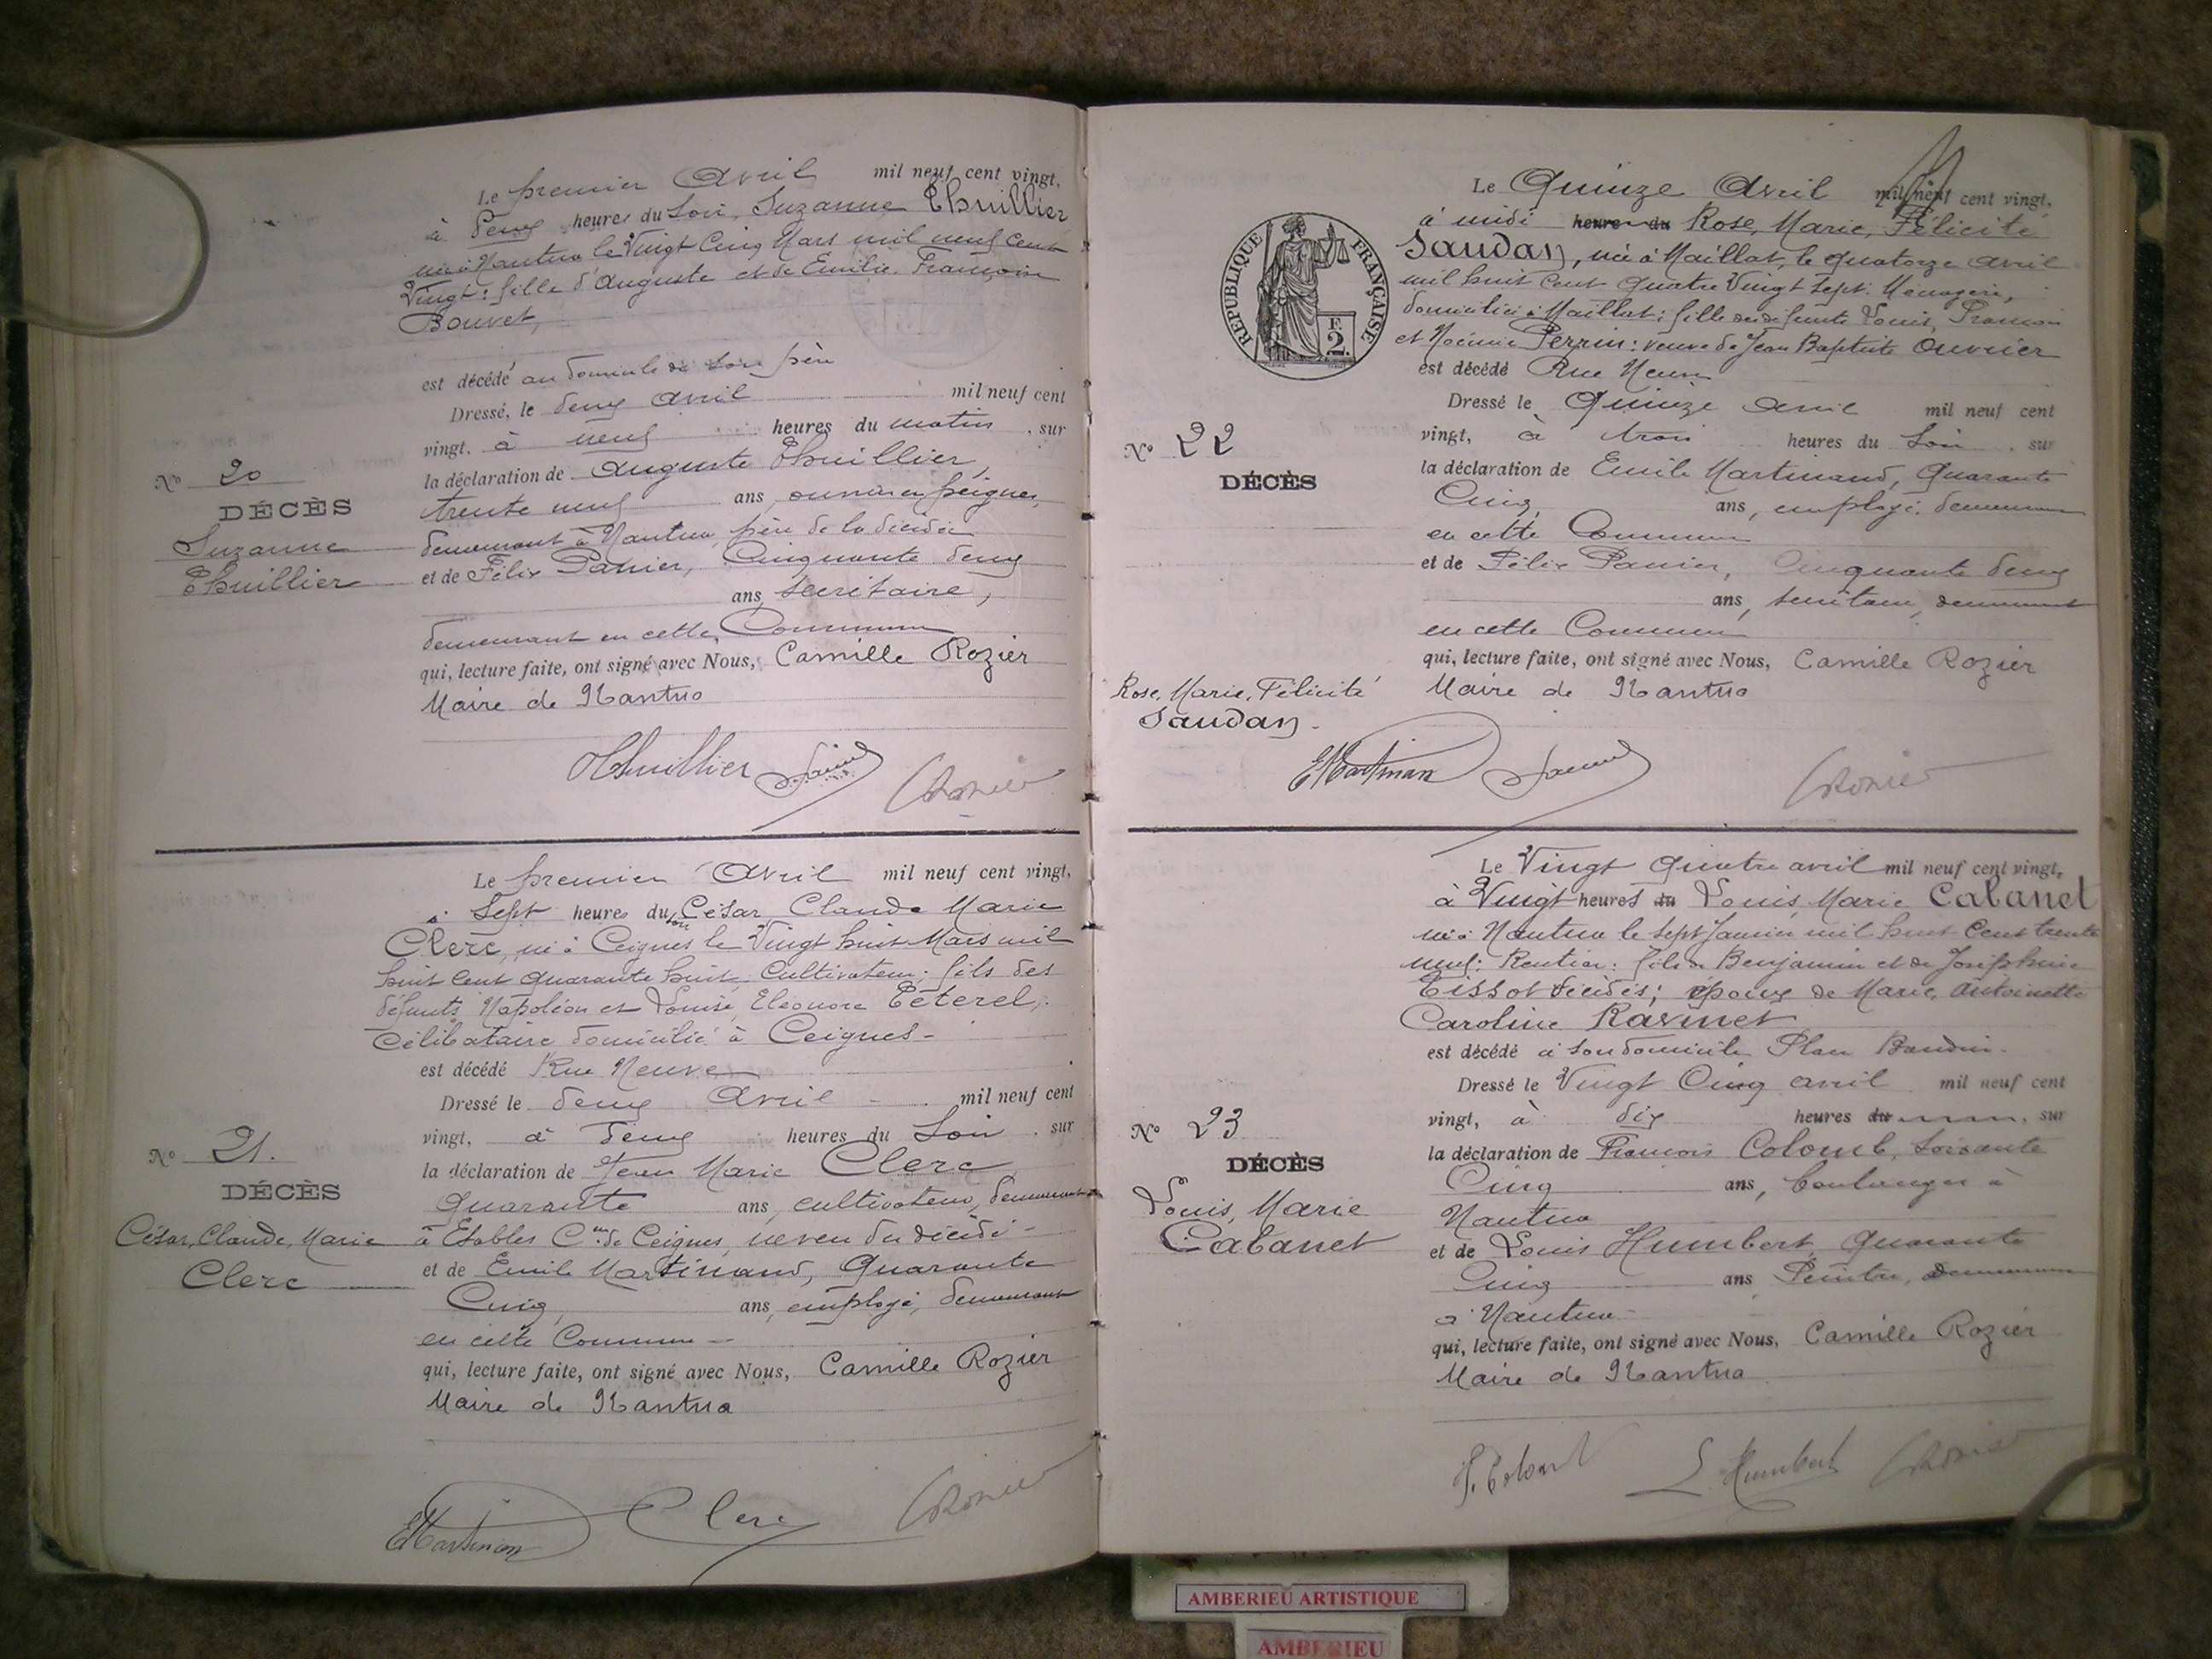 Le premier Avril mil neuf cent vingt,
à Deux heures du Soir, Suzanne Thuillier
née à Nantua le Vingt Cinq Mars mil neuf cent
Vingt: fille d'Auguste et de Emilie Françoise
Bouvet,
est décédé au domicile de son père
Dressé, le deux Avril mil neuf cent
vingt, à neuf heures du matin, sur
la déclaration de Auguste Thuillier,
trente neuf ans, ouvrier en peignes,
demeurant à Nantua, père de la décédée
et de Félix Panier, Cinquante deux
ans, secrétaire,
demeurant en cette Commune
qui, lecture faite, ont signé avec Nous, Camille Rozier
Maire de Nantua
No 20
DÉCÈS
Suzanne
Thuillier
Thuillier
Le premier Avril mil neuf cent vingt,
à Sept heures du soir César, Claude Marie
Clerc, né à Ceignes le Vingt huit Mars mil
huit cent quarante huit, Cultivateur; fils des
défunts Napoléon et Louise, Eléonore Téterel;
Célibataire domicilié à Ceignes-
est décédé Rue Neuve
Dressé le deux Avril mil neuf cent
vingt, à Deux heures du Soir, sur
la déclaration de Jean Marie Clerc
Quarante ans, cultivateur, demeurant
à Etables Cne de Ceignes, neveu du décédé-
et de Emile Martinand, Quarante
Cinq, ans, employé, demeurant
en cette Commune-
qui, lecture faite, ont signé avec Nous, Camille Rozier
Maire de Nantua
No 21.
DÉCÈS
César, Claude, Marie
Clerc
EMartinan Clerc CRozier
Le Quinze Avril mil neuf cent vingt,
à midi heures du Rose, Marie, Félicité
Saudan, née à Maillat, le quatorze avril
mil huit Cent Quatre Vingt Sept. Ménagère,
domiciliée à Maillat; fille des défunts Louis, François
et Noémie Perrin: veuve de Jean Baptiste Ouvrier
est décédé Rue Neuve
Dressé le Quinze avril mil neuf cent
vingt, à trois heures du Soir, sur
la déclaration de Emile Martinand, Quarante
Cinq, ans, employé, demeurant
en cette Commune
et de Félix Panier, Cinquante deux
ans, secrétaire, demeurant
en cette Commune
qui, lecture faite, ont signé avec Nous, Camille Rozier
Maire de Nantua
RÉPUBLIQUE FRANÇAISE
F.
2.
No 22
DÉCÈS
Rose, Marie, Félicité
Saudan.
EMartinan CRozier
Le Vingt Quatre avril mil neuf cent vingt,
à Vingt heures du Louis, Marie Cabanet
né à Nantua le sept Janvier mil huit Cent trente
neuf: Rentier: fils de Benjamin et de Joséphine
Tissot décédés; époux de Marie, Antoinette
Caroline Ravinet
est décédé à son domicile Place Baudin.
Dressé le Vingt Cinq avril mil neuf cent
vingt, à dix heures du, sur
la déclaration de François Colomb, Soixante
Cinq ans, boulanger à
Nantua
et de Louis Humbert, Quarante
Cinq ans Peintre, demeurant
à Nantua-
qui, lecture faite, ont signé avec Nous, Camille Rozier
Maire de Nantua
No 23
DÉCÈS
Louis, Marie
Cabanet
F. Colomb L. Humbert CRozier
AMBERIEU ARTISTIQUE
AMBERIEU